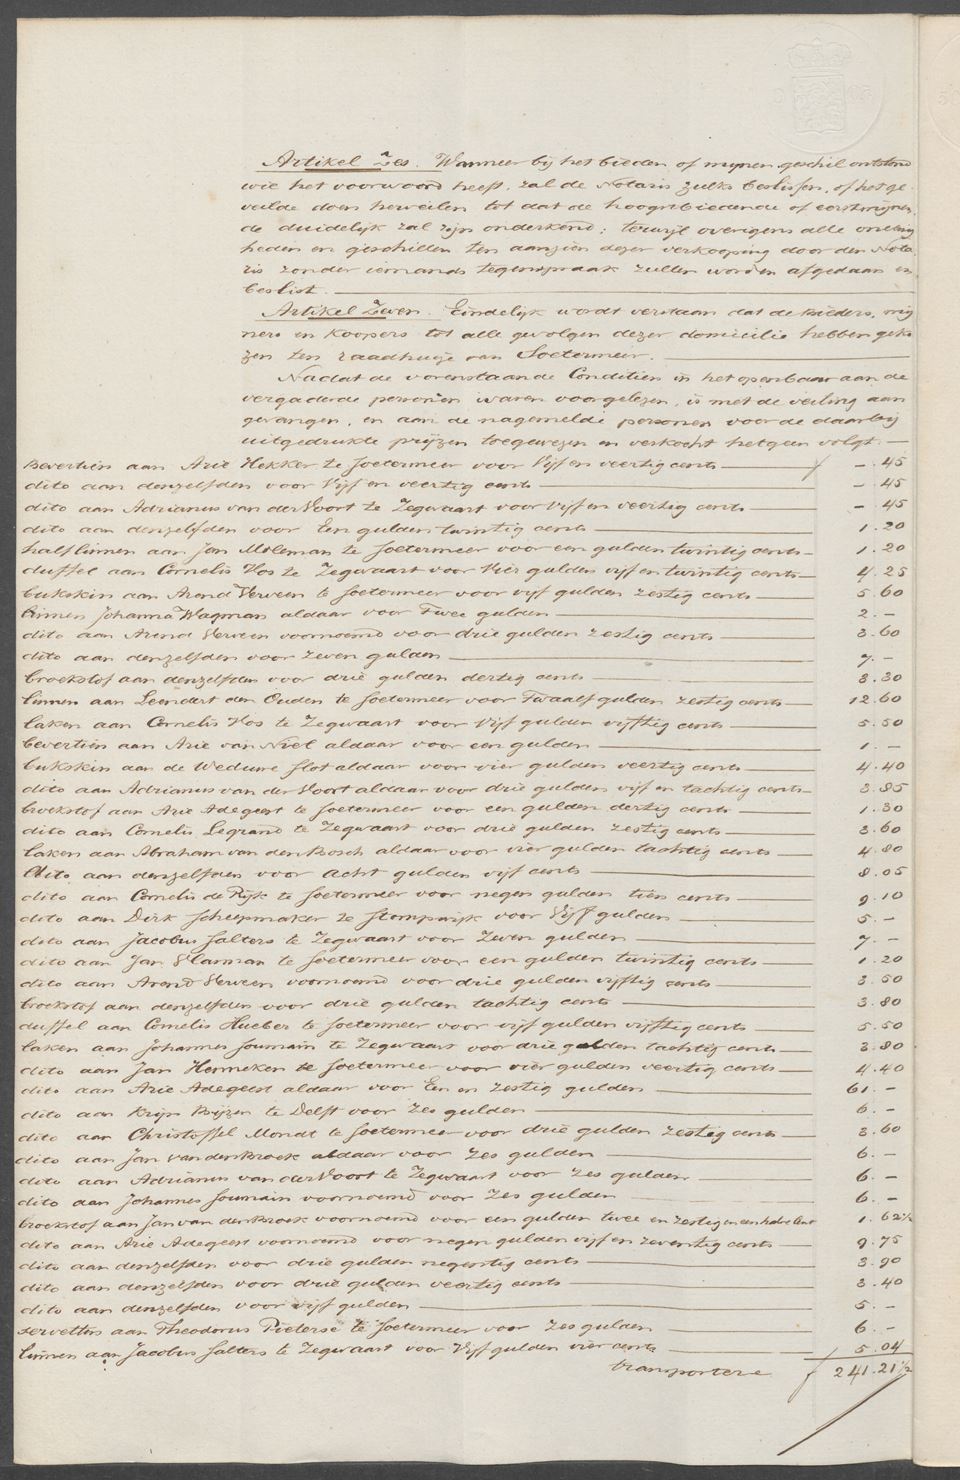 Artikel Zes. Wanneer bij het bieden of mynen geschil ontstond
wie het voorwoord heeft, zal de Notaris zulks beslissen, of het ge-
veilde doen herveilen tot dat de hoogstbiedende of eerstmijnen-
de duidelijk zal zijn onderkend; terwijl overigens alle oneenig
heden en geschillen ten aanzien dezer verkooping door den Nota
ris zonder iemands tegenspraak zullen worden afgedaan en
beslist.
Artikel Zeven. Eindelijk wordt verstaan dat de bieders, mij
ners en Koopers tot alle gevolgen dezer domicilie hebben geko
zen ten raadhuize van Soetermeer.
Nadat de vorenstaande Conditien in het openbaar aan de
vergaderde personen waren voorgelezen, is met de veiling aan
gevangen, en aan de nagemelde personen voor de daarbij
uitgedrukte prijzen toegewezen en verkocht hetgeen volgt.
Bevertien aan Arie Hekker te Soetermeer voor Vijf en veertig cents ƒ -.45
dito aan denzelfden voor Vijf en veertig cents -.45
dito aan Adrianus van der Voort te Zegwaart voor vijf en veertig cents -.45
dito aan denzelfden voor Een gulden twintig cents 1.20
half linnen aan Jan Moleman te Soetermeer voor een gulden twintig cents 1.20
duffel aan Cornelis Vos te Zegwaart voor Vier gulden vijf en twintig cents 4.25
bukskin aan Arend Verveen te Soetermeer voor vijf gulden zestig cents 5.60
linnen Johanna Wagman aldaar voor Twee gulden 2.-
dito aan Arend Verveen voornoemd voor drie gulden zestig cents 3.60
dito aan denzelfden voor zeven gulden 7.-
broekstof aan denzelfden voor drie gulden dertig cents 3.30
linnen aan Leendert den Ouden te Soetermeer voor Twaalf gulden zestig cents 12.60
laken aan Cornelis Vos te Zegwaart voor Vijf gulden vijftig cents 5.50
bevertien aan Arie van Niel aldaar voor een gulden 1.-
bukskin aan de Weduwe Slot aldaar voor vier gulden veertig cents 4.40
dito aan Adrianus van der Voort aldaar voor drie gulden vijf en tachtig cents 3.85
broekstof aan Arie Adegeest te Soetermeer voor een gulden dertig cents 1.30
dito aan Cornelis Legrand te Zegwaart voor drie gulden zestig cents 3.60
laken aan Abraham van den Bosch aldaar voor vier gulden tachtig cents 4.80
dito aan denzelfden voor acht gulden vijf cents 8.05
dito aan Cornelis de Rijk te Soetermeer voor negen gulden tien cents 9.10
dito aan Dirk Scheepmaker te Stompwijk voor Vijf gulden 5.-
dito aan Jacobus Salters te Zegwaart voor Zeven gulden 7.-
dito aan Jan Vlarman te Soetermeer voor een gulden twintig cents 1.20
dito aan Arend Verveen voornoemd voor drie gulden vijftig cents 3.50
broekstof aan denzelfden voor drie gulden tachtig cents 3.80
duffel aan Cornelis Hueber te Soetermeer voor vijf gulden vijftig cents 5.50
laken aan Johannes Soumain te Zegwaart voor drie gulden tachtig cents 3.80
dito aan Jan Henneken te Soetermeer voor vier gulden veertig cents 4.40
dito aan Arie Adegeest aldaar voor Een en zestig gulden 61.-
dito aan Krijn Buijzen te Delft voor zes gulden 6.-
dito aan Christoffel Mondt te Soetermeer voor drie gulden zestig cents 3.60
dito aan Jan van den Broek aldaar voor zes gulden 6.-
dito aan Adrianus van der Voort te Zegwaart voor zes gulden 6.-
dito aan Johannes Soumain voornoemd voor zes gulden 6.-
broekstof aan Jan van den Broek voornoemd voor een gulden twee en zestig en een halve Cent 1.62½
dito aan Arie Adegeest voornoemd voor negen gulden vijf en zeventig cents 9.75
dito aan denzelfden voor drie gulden negentig cents 3.90
dito aan denzelfden voor drie gulden veertig cents 3.40
dito aan denzelfden voor vijf gulden 5.-
servetten aan Theodorus Pieterse te Soetermeer voor zes gulden 6.-
linnen aan Jacobus Salters te Zegwaart voor Vijf gulden vier cents 5.04
transportere ƒ 241.21½